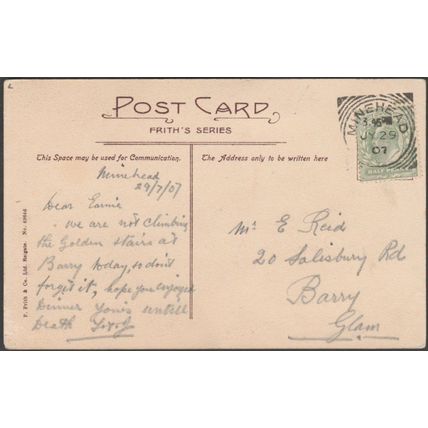 POST CARD
FRITH'S SERIES
This Space may be used for Communication.
The Address only to be written here
MINEHEAD
JY 29
07
HALF PENNY
Minehead
29/7/07
Dear Ernie
we are not climbing
the Golden stairs at
Barry today, so don't
forget it, hope you enjoyed
Dinner Yours untill
Death
Mr E Reid
20 Salisbury Rd
Barry
Glam
F. Frith & Co. Ltd. Reigate.